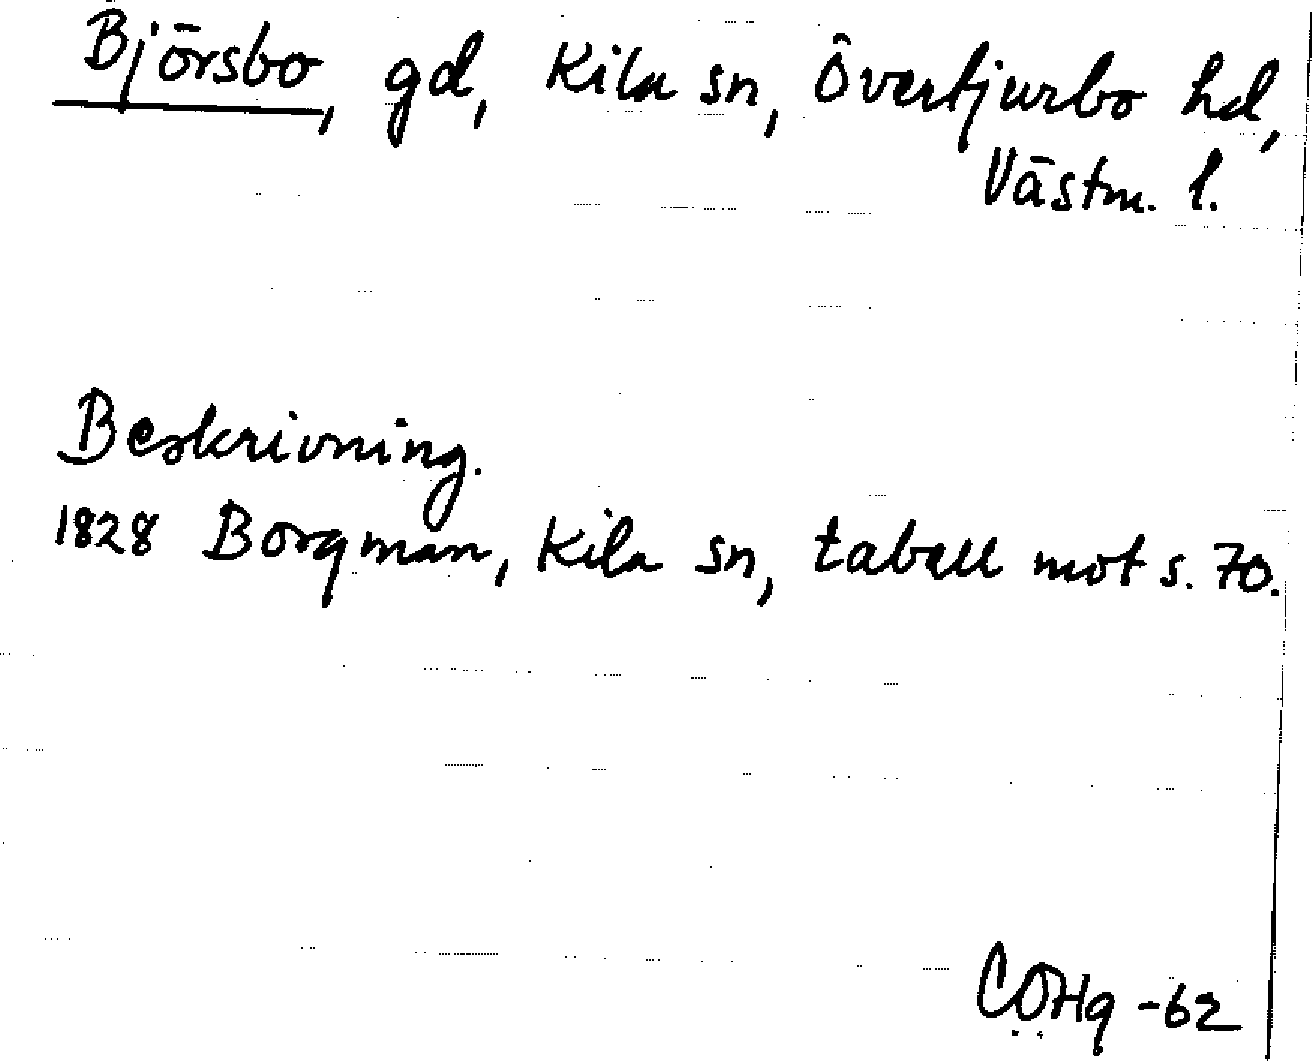 Björsbo, gd, Kila sn, Övertjurbo hd,
Västm. l.
Beskrivning.
1828 Borgman, Kila sn, tabell mot s. 70.
COHg -62